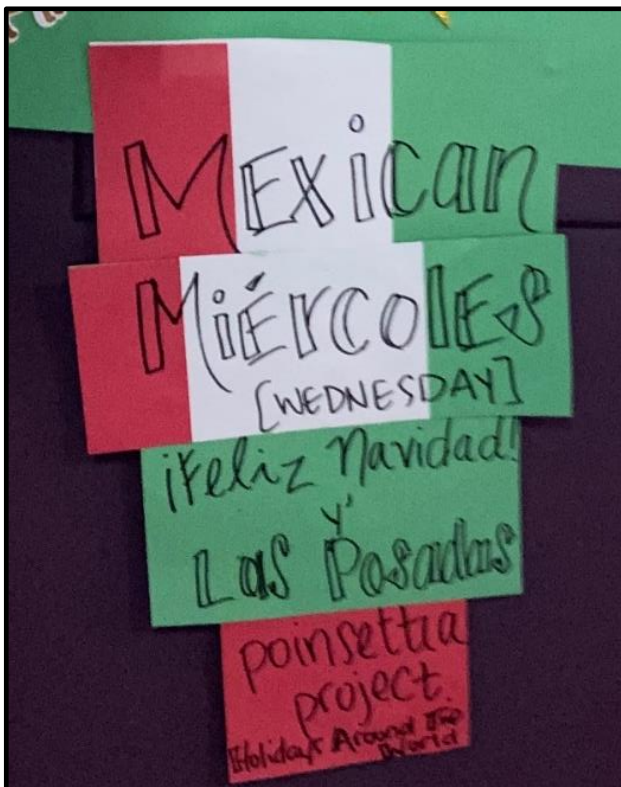 Mexican
Miércoles
[WEDNESDAY]
¡Feliz Navidad!
y
Las Posadas
poinsettia
project.
Holidays Around The
World